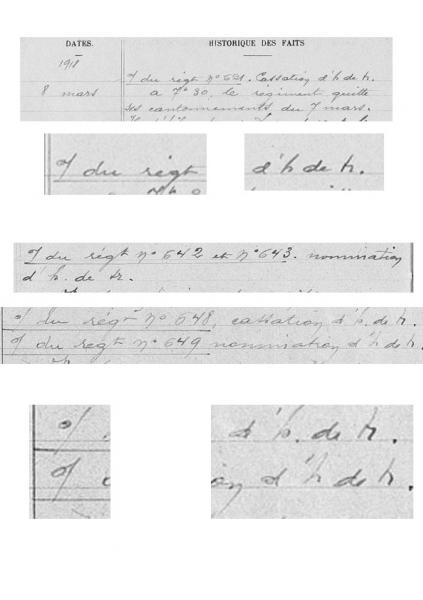 DATES. HISTORIQUE DES FAITS
1918
O/ du régt n° 631. Cassation d'h de tr.
8 mars a 7h 30, le régiment quitte
ses cantonnements du 7 mars.
O/ du régt d'h de tr.
O/ du régt N° 642 et N° 643. nomination
d'h. de tr.
O/ du régt N° 648, cassation d'h. de tr.
O/ du régt N° 649 nomination d'h de tr.
O/ d'h. de tr.
O/ d'h de tr.